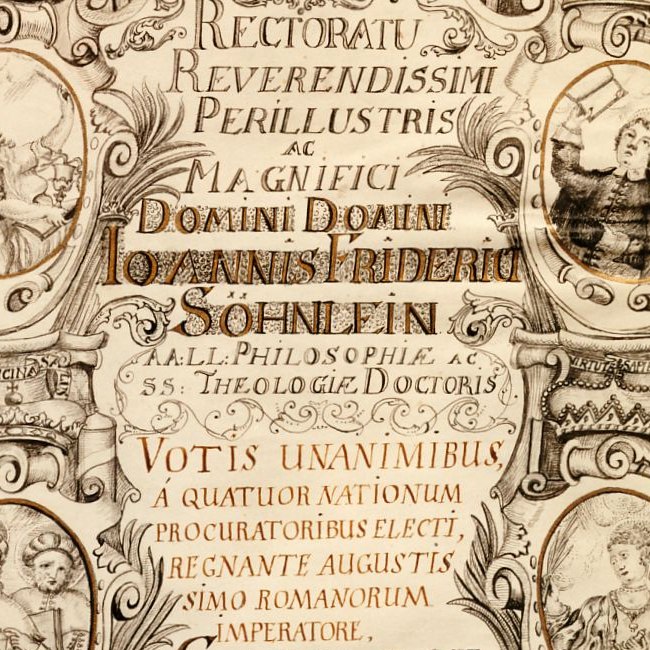 RECTORATU
REVERENDISSIMI
PERILLUSTRIS
AC
MAGNIFICI
DOMINI DOMINI
IOANNIS FRIDERICI
SÖHNLEIN
AA: LL: PHILOSOPHIÆ AC
SS: THEOLOGIÆ DOCTORIS
VOTIS UNANIMIBUS,
Á QUATUOR NATIONUM
PROCURATORIBUS ELECTI,
REGNANTE AUGUSTIS
SIMO ROMANORUM
IMPERATORE,